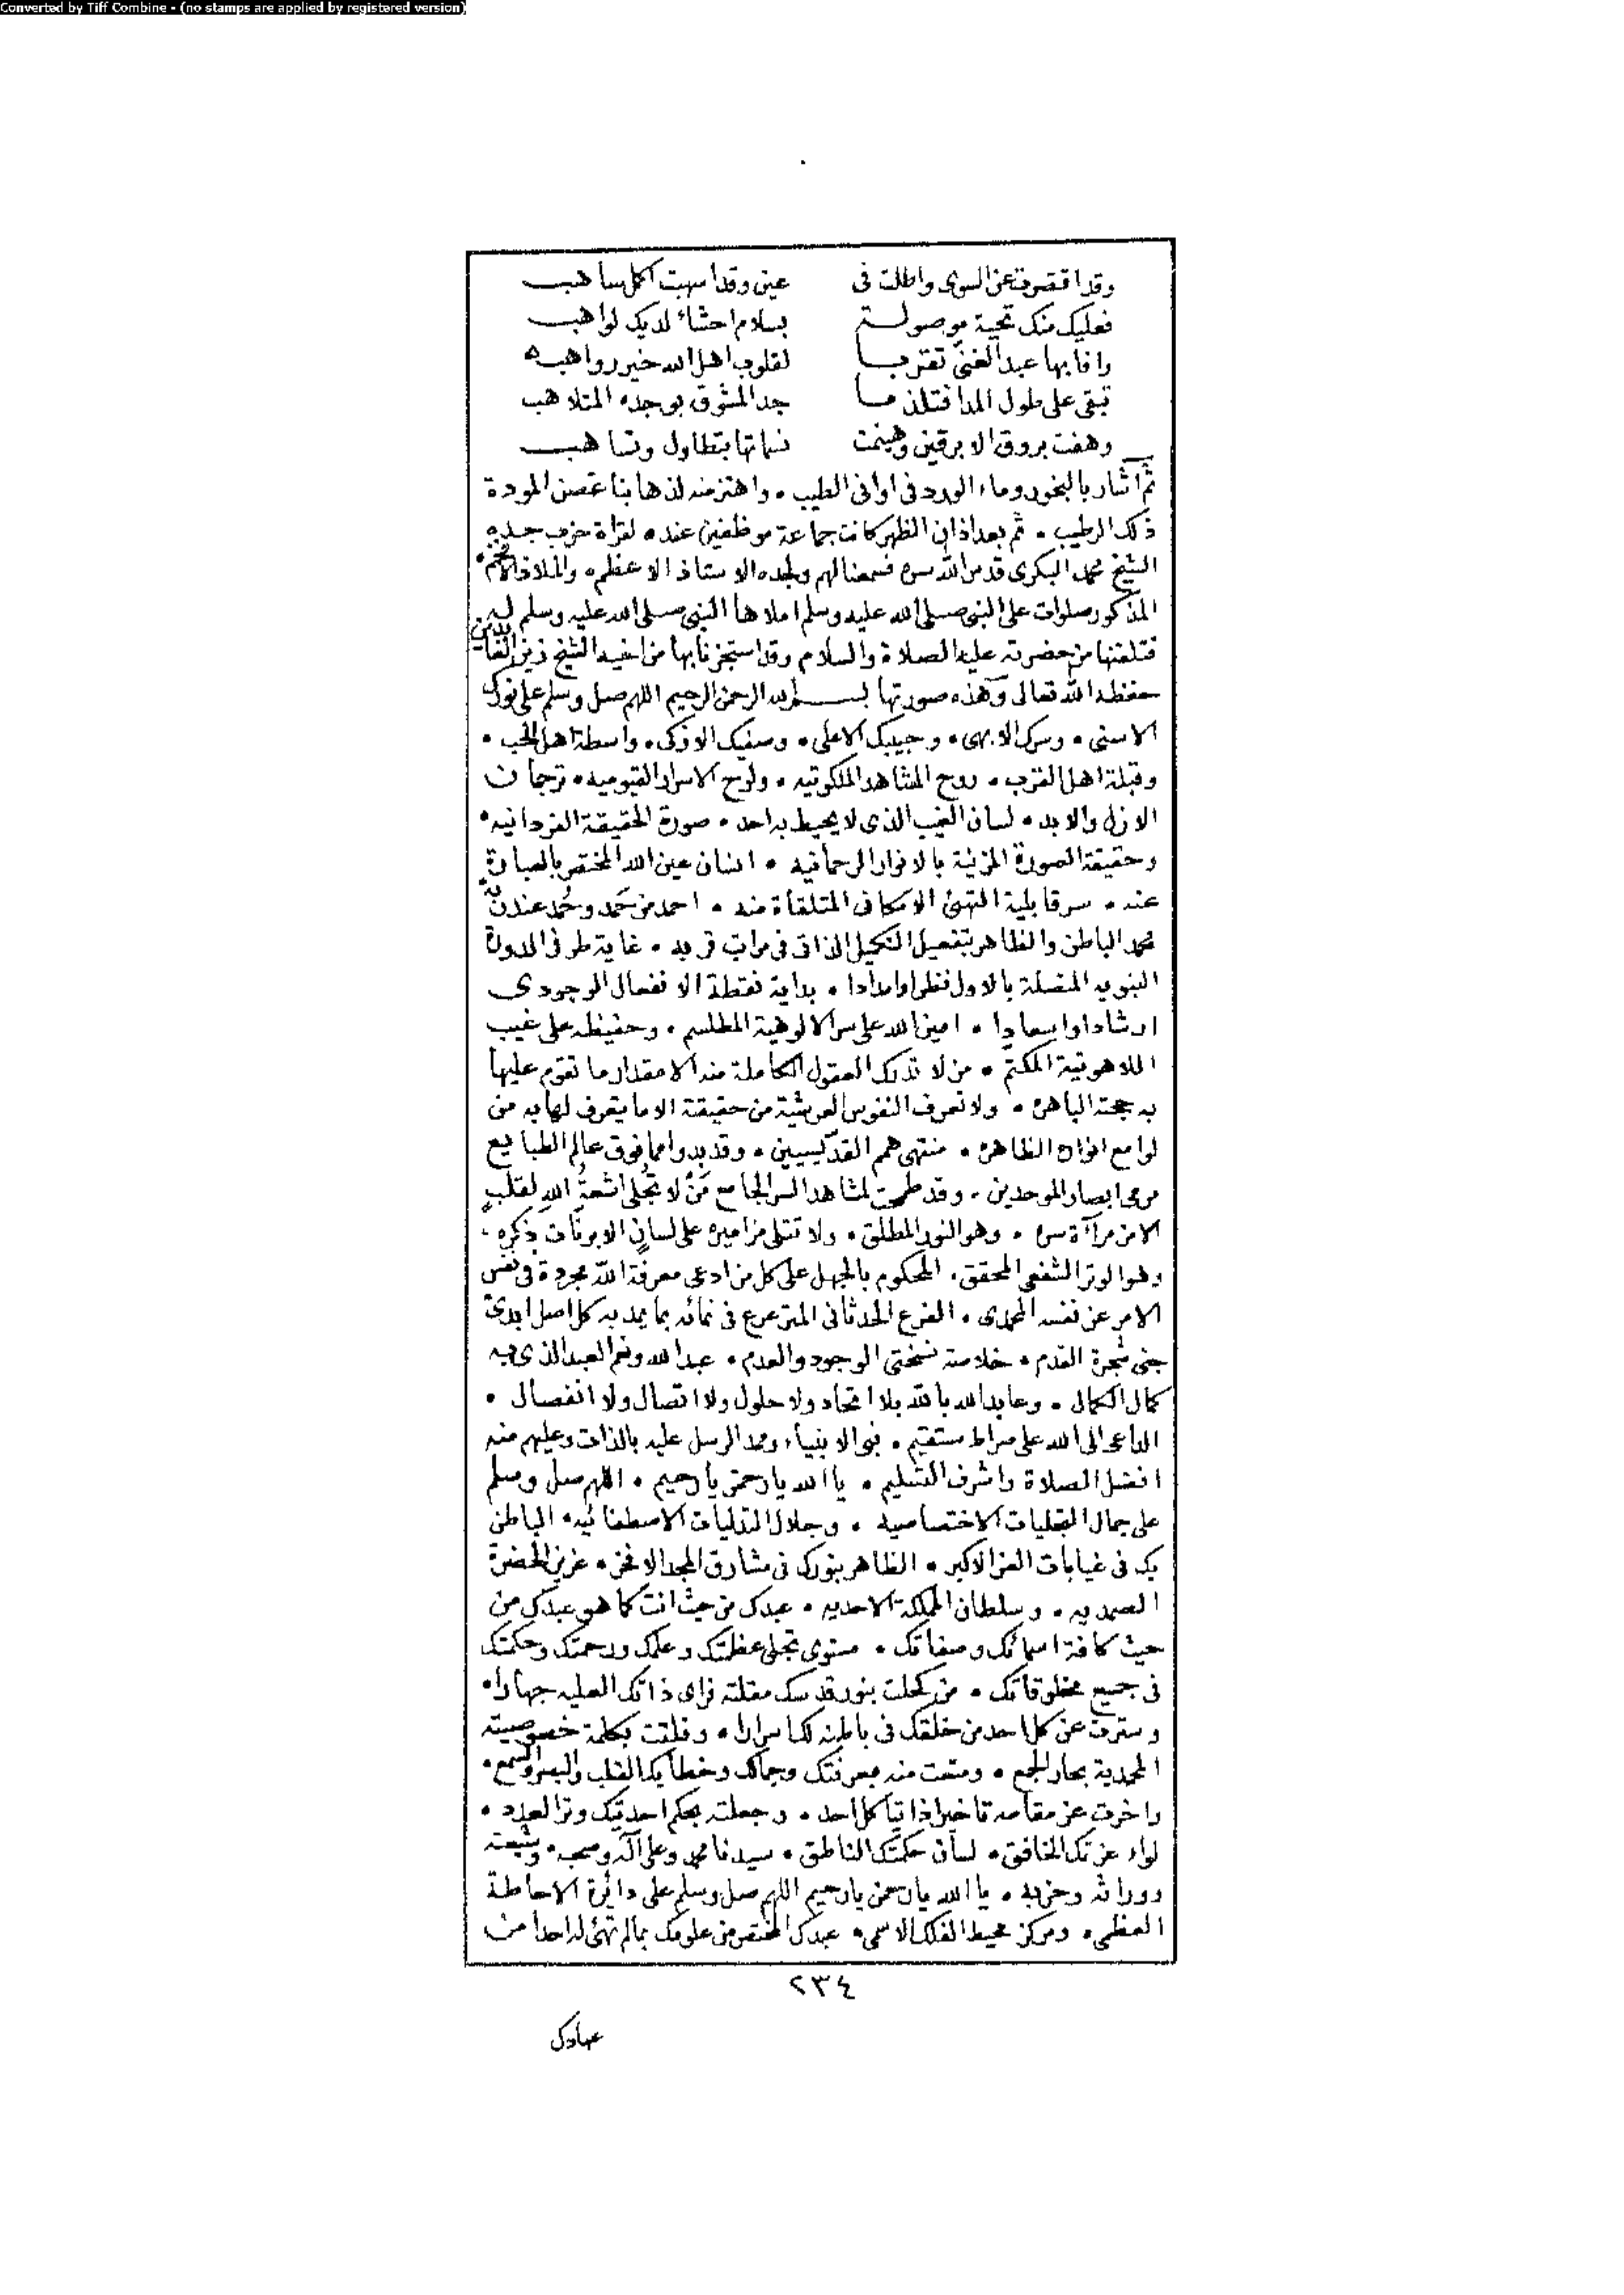 Converted by Tiff Combine - (no stamps are applied by registered version)
وقد اقتصرت عن السوى واطلت فى عينى وقد اسهبت اكمل ساهب
فعليك منك تحية موصولة بسلام احشاء لديك لواهب
وافا بها عبد الغنى تقربا لقلوب اهل الله خير رواهب
تبقى على طول المدا فتلذ ما جد المشوق بوجده المتلاهب
وهفت بروق الابرقين وهينمت نسماتها بتطاول وتساهب
ثم اشار بالبخور وماء الورد فى اوانى الطيب • واهتز منه لذهابنا غصن المودة
ذلك الرطيب • ثم بعد اذان الظهر كانت جماعة موظفين عنده لقراة حزب جده
الشيخ محمد البكرى قدس الله سره فسمعنا لهم ولجده الاستاذ الاعظم • والملاذ الافخم •
المذكور صلوات على النبى صلى الله عليه وسلم املاها النبى صلى الله عليه وسلم ليه
فتلقنها من حضرته عليه الصلاة والسلام وقد استجزنا بها من اخيه الشيخ زين العابدين
حفظه الله تعالى وهذه صورتها بسم الله الرحمن الرحيم اللهم صل وسلم على نورك
الاسنى • وسرك الابهى • وحبيبك الاعلى • وصفيك الازكى • واسطة اهل الحب •
وقبلة اهل القرب • روح المشاهد الملكوتيه • ولوح الاسرار القيوميه • ترجمان
الازل والابد • لسان الغيب الذى لا يحيط به احد • صورة الحقيقة الفردانيه •
وحقيقة الصورة المزينة بالانوار الرحمانيه • انسان عين الله المختص بالعبارة
عنه • سر قابلية التهئ الامكانى المتلقاة منه • احمد من حَمد وحُمد عند ربه
محمد الباطن والظاهر بتفعيل التكميل الذاتى فى مراتب قربه • غاية طرفى الدورة
النبويه المتصلة بالاول نظرا وامدادا • بداية نقطة الانفعال الوجودى
ارشادا واسعادا • امين الله على سر الالوهية المطلسم • وحفيظه على غيب
اللاهوتية المكتم • من لا تدرك العقول الكاملة منه الا مقدار ما تقوم عليها
به حجته الباهره • ولا تعرف النفوس العرشية من حقيقته الا ما يتعرف لها به من
لوامع انواره الظاهره • منتهى همم القدسيين • وقد بدوا مما فوق عالم الطبايع
مرمى ابصار الموحدين • وقد طمحت لمشاهد السر الجامع مَنْ لا تُجلى اشعة الله لقلب
الا من مرآة سره • وهو النور المطلق • ولا تتلى مزاميره على لسان الا برنات ذكره •
وهو الوتر الشفعى المحقق • المحكوم بالجهل على كل من ادعى معرفة الله مجردة فى نفس
الامر عن نفسه المحمدى • الفرع الحدثانى المترعرع فى نمائه بما يمد به كل اصل ابدى
جنى شجرة القدم • خلاصة نسختى الوجود والعدم • عبد الله ونعم العبد الذى به
كمال الكمال • وعابد الله بالله بلا اتحاد ولا حلول ولا اتصال ولا انفصال •
الداعى الى الله على صراط مستقيم • نبى الانبياء وممد الرسل عليه بالذات وعليهم منه
افضل الصلاة واشرف التسليم • يا الله يا رحمن يا رحيم • اللهم صل وسلم
على جمال التجليات الاختصاصيه • وجلال التدليات الاصطفائيه • الباطن
بك فى غيابات العز الاكبر • الظاهر بنورك فى مشارق المجد الافخر • عزيز الحضرة
الصمديه • وسلطان المملكة الاحديه • عبدك من حيث انت كما هو عبدك من
حيث كافة اسمائك وصفاتك • مستوى تجلى عظمتك وعلمك ورحمتك وحكمتك
فى جميع مخلوقاتك • من كحلت بنور قدسك مقلته فراى ذاتك العليه جهارا •
وسترت عن كل احد من خلقك فى باطنه لك اسرارا • وفلقت بكلمة خصوصيته
المحمدية بحار الجمع • ومتعت منه بمعرفتك وجمالك وخطابك القلب والبصر والسمع •
واخرت عن مقامه تاخيرا ذاتيا كل احد • وجعلته بحكم احديتك وتر العدد •
لواء عزتك الخافق • لسان حكمتك الناطق • سيدنا محمد وعلى آله وصحبه وشيعته
ووراثه وحزبه • يا الله يا رحمن يا رحيم اللهم صل وسلم على دائرة الاحاطة
العظمى • ومركز محيط الفلك الاسمى • عبدك المختص من علومك بما لم تهئ له احدا من
٢٣٤
عبادك